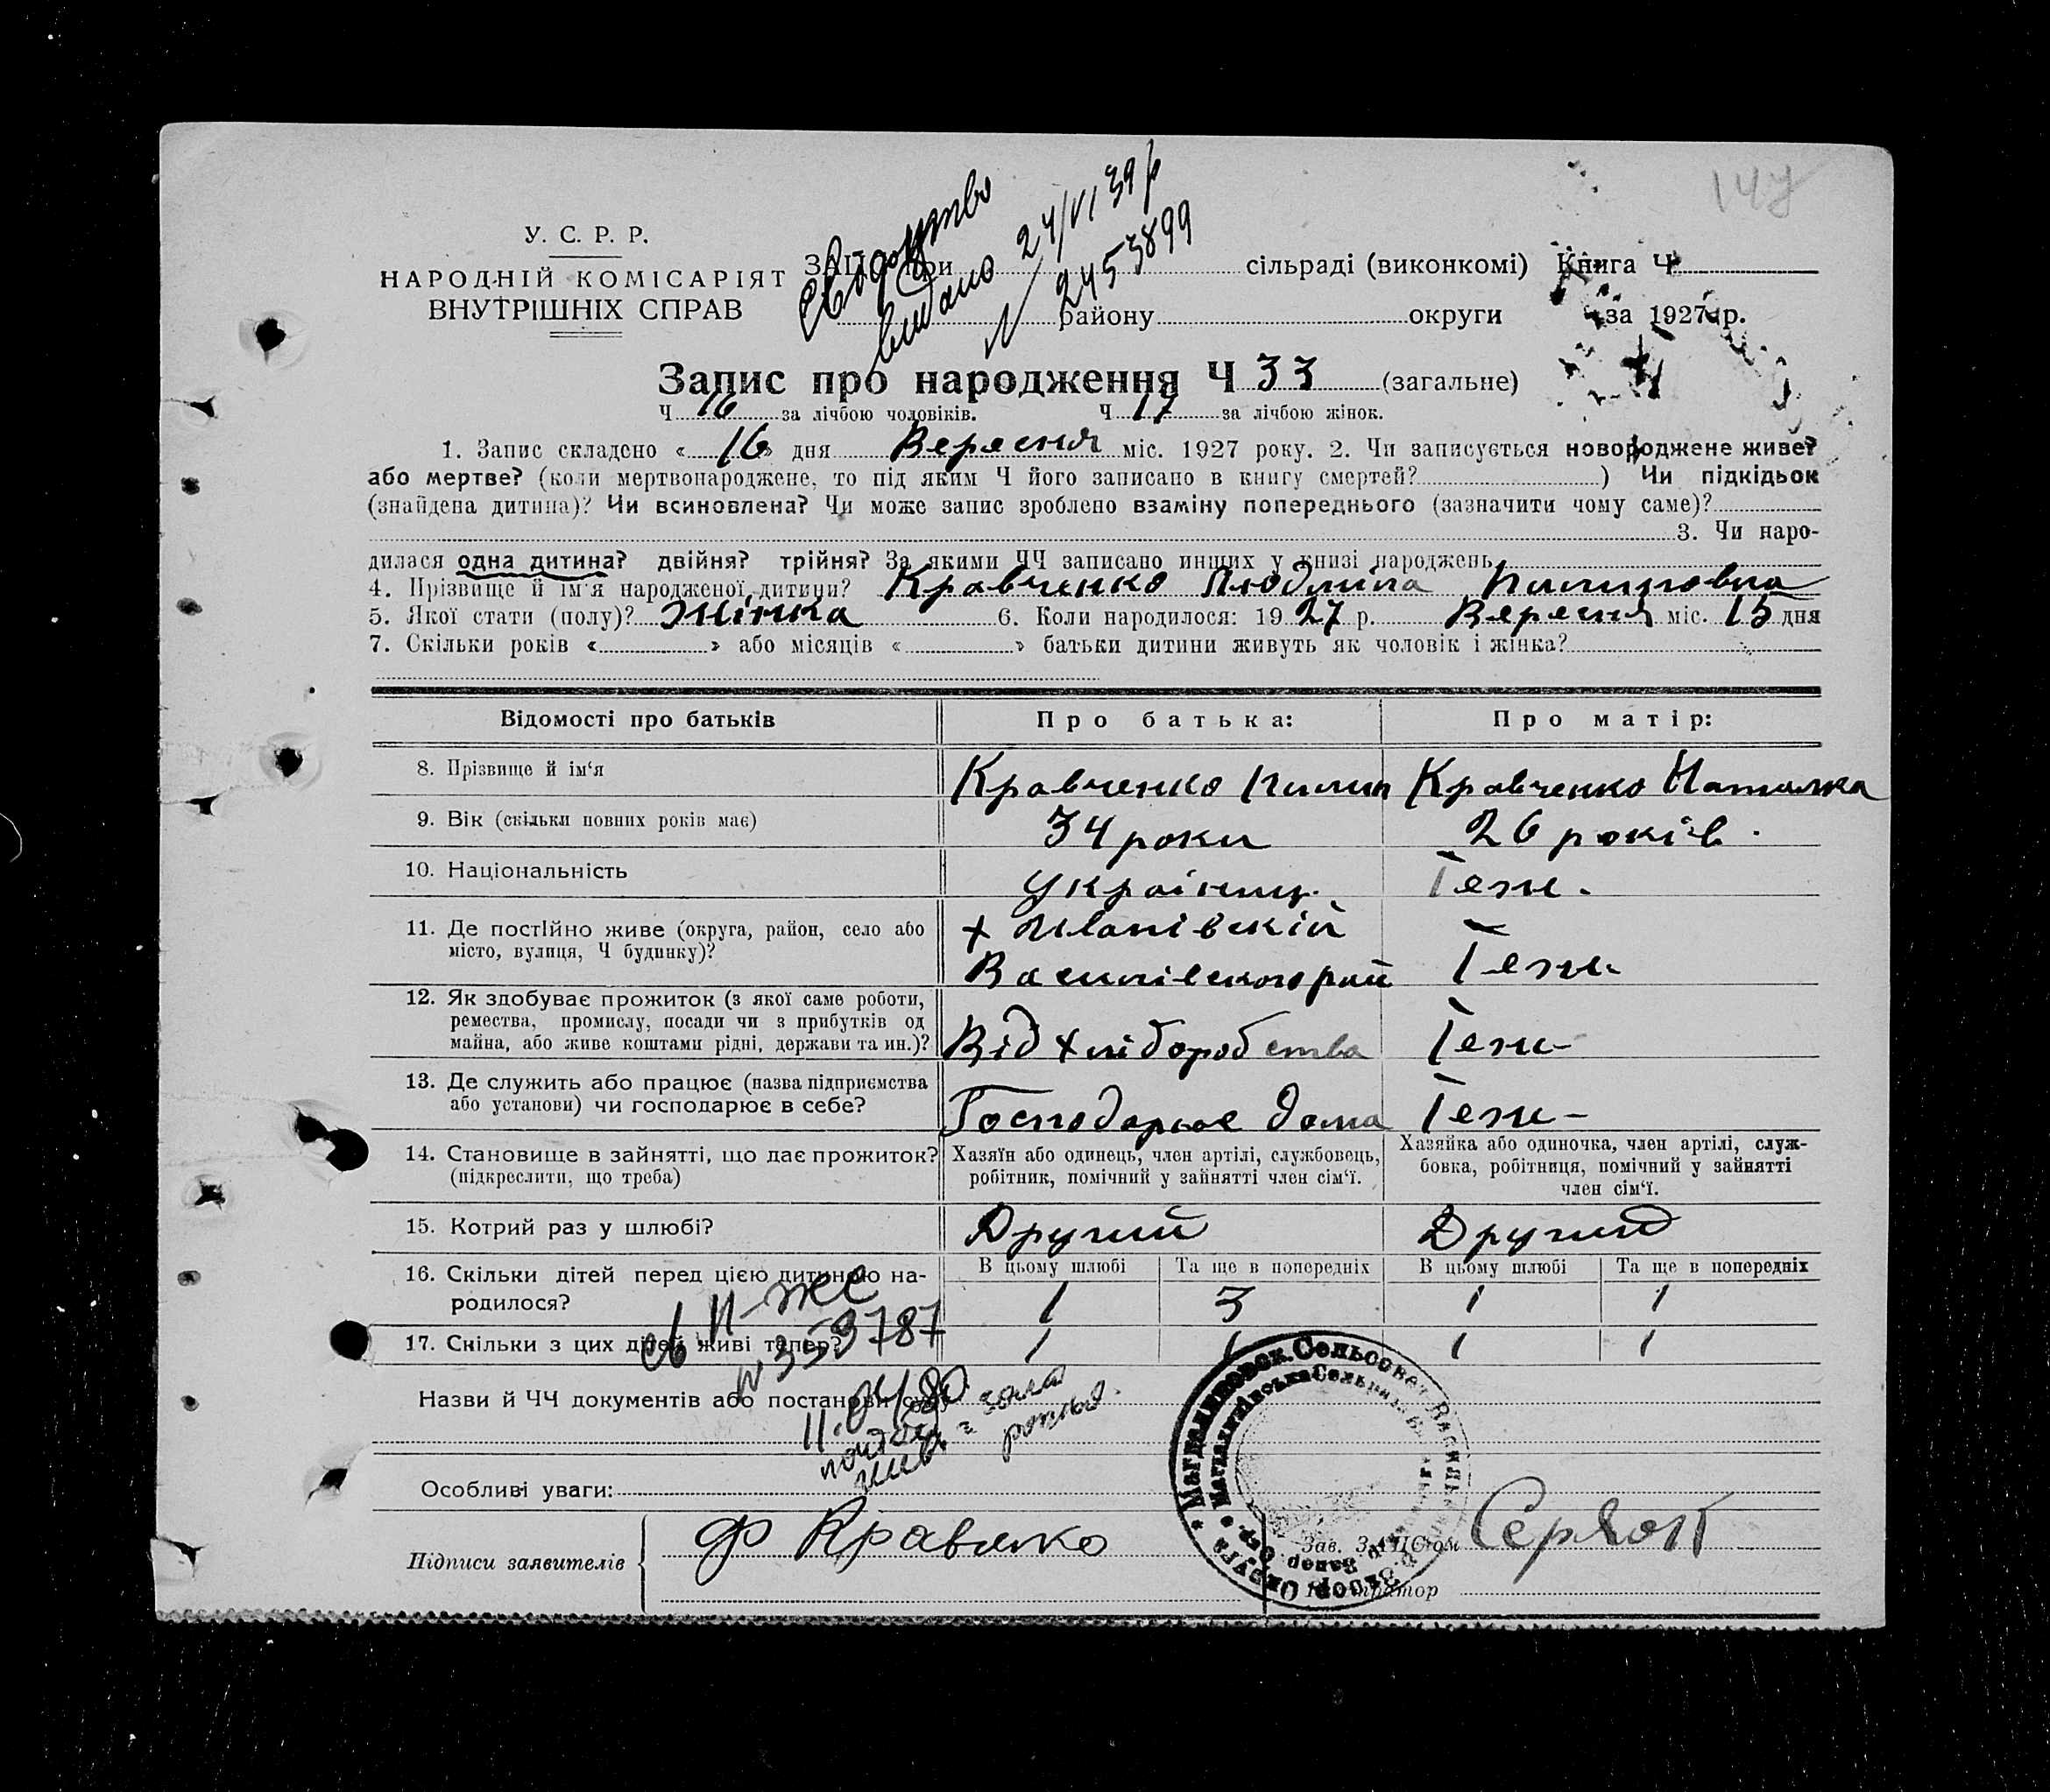 147
У. С. Р. Р.
НАРОДНІЙ КОМІСАРІЯТ
ВНУТРІШНІХ СПРАВ
Свидоцтво
видано 24/VI 39 р
N 2453899
ЗАГС при сільраді (виконкомі) Книга Ч
району округи за 1927 р.
Запис про народження Ч 33 (загальне)
Ч 16 за лічбою чоловіків. Ч 17 за лічбою жінок.
1. Запис складено « 16 » дня Вересня міс. 1927 року. 2. Чи записується новороджене живе?
або мертве? (коли мертвонароджене, то під яким Ч його записано в книгу смертей? ) Чи підкідьок
(знайдена дитина)? Чи всиновлена? Чи може запис зроблено взаміну попереднього (зазначити чому саме)?
3. Чи наро-
дилася одна дитина? двійня? трійня? За якими ЧЧ записано инших у книзі народжень
4. Прізвище й ім'я народженої дитини? Кравченко Людмила Пилиповна
5. Якої стати (полу)? Жінка 6. Коли народилося: 19 27 р. Вересня міс. 15 дня
7. Скільки років « » або місяців « » батьки дитини живуть як чоловік і жінка?
Відомості про батьків Про батька: Про матір:
8. Прізвище й ім'я Кравченко Пилип Кравченко Наталка
9. Вік (скільки повних років має) 34 роки 26 років.
10. Національність Українц. Теж.
11. Де постійно живе (округа, район, село або х
місто, вулиця, Ч будинку)? Василівского рай Теж.
12. Як здобуває прожиток (з якої саме роботи,
ремества, промислу, посади чи з прибутків од
майна, або живе коштами рідні, держави та ин.)? Від хліборобства Теж-
13. Де служить або працює (назва підприємства
або установи) чи господарює в себе? Господарює дома Теж-
14. Становище в зайнятті, що дає прожиток?
(підкреслити, що треба)
Хазяїн або одинець, член артілі, службовець,
робітник, помічний у зайнятті член сім'ї.
Хазяйка або одиночка, член артілі, служ-
бовка, робітниця, помічний у зайнятті
член сім'ї.
15. Котрий раз у шлюбі? Другий Другий
В цьому шлюбі Та ще в попередніх В цьому шлюбі Та ще в попередніх
16. Скільки дітей перед цією дитиною на-
родилося? 1 3 1 1
17. Скільки з цих дітей живі тепер? 1 1 1
св II-ЖС
N 359787
11.04.80
Назви й ЧЧ документів або постанови суду
Особливі уваги:
Підписи заявителів Ф Кравченко
Зав. ЗАГС'ом
Реєстратор
Магдалиновск. Сельсовет
Округа Запор.